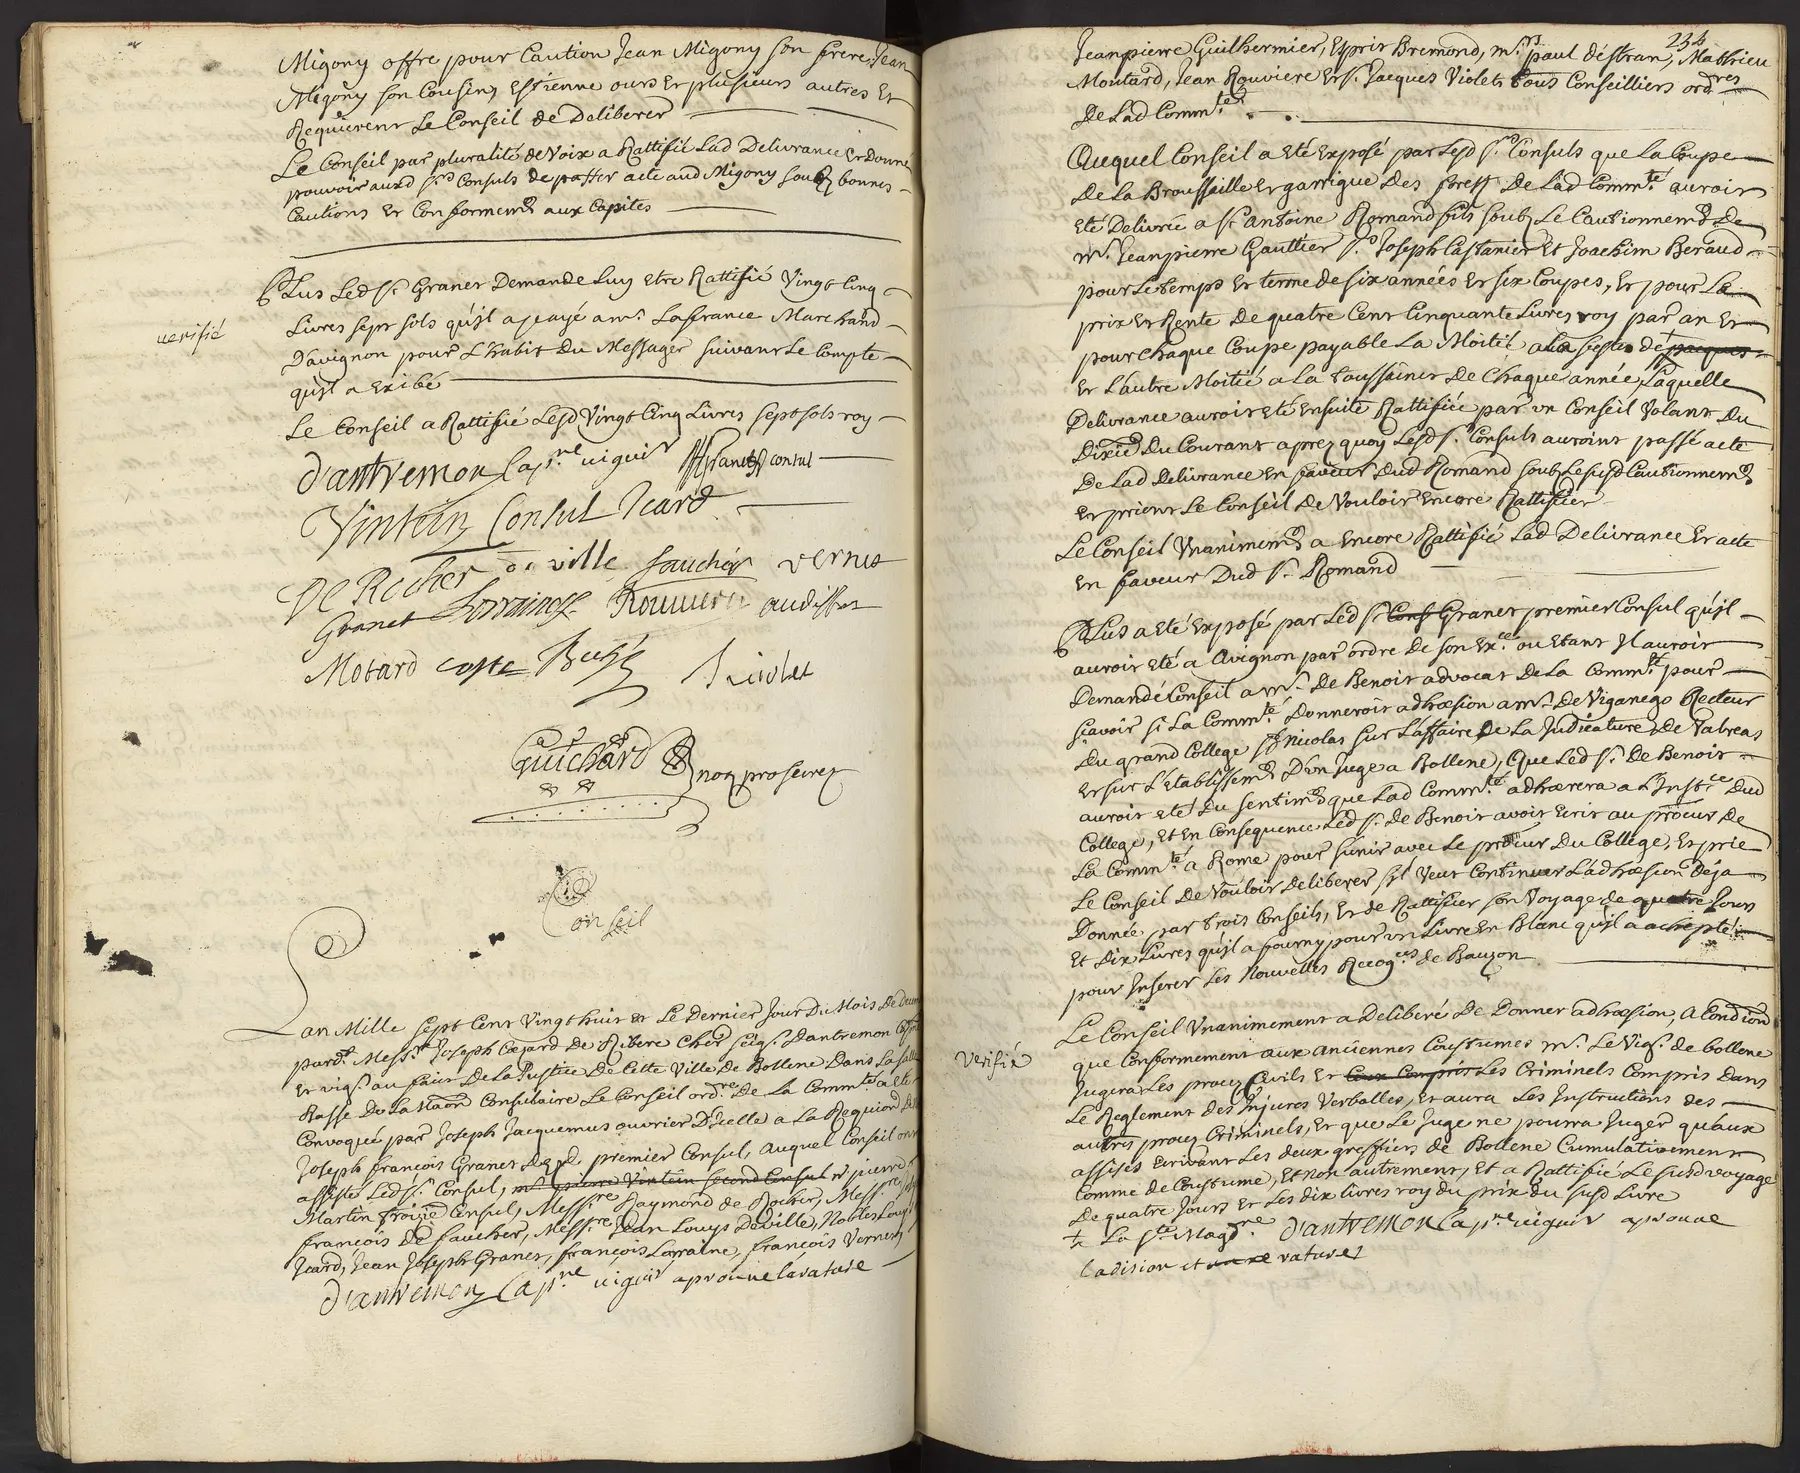 Migony offre pour Caution Jean Migony son frere, Jean
Migony son Cousin, Estienne ours Et plusieurs autres Et
Requierent Le Conseil de Deliberer
Le Conseil par pluralité de Voix a Rattifié Lad Delivrance Et Donné
pouvoir auxd srs Consuls de passer acte aud Migony soub bonnes
Cautions Et Conformemt aux Capites
PLus Led sr Granet Demande Luy Etre Rattifié Vingt Cinq
verifié
Livres sept sols qu'jl a payé a mr Lafrance Marchand
D'avignon pour L'habit Du Messager suivant Le Compte
qu'jl a Exibé
Le Conseil a Rattifié Lesd Vingt Cinq Livres sept sols roy
d'antremon Capne viguir Granet consul
Vintein Consul Icard
De Rocher de ville fauchér vernet
Granet Lorraine Rouviere audiffret
Motard coste Violet
Guichard non proseirez
Conseil
L'an Mille sept Cent Vingt huit et Le Dernier Jour Du Mois De
pardt Messre Joseph Cezard De Ribere Cher seigr Dantremon
Et vigr au fait De La Justice De Cette Ville De Bollene Dans La salle
Basse De La Maon Consulaire Le Conseil ordre De La Commté a Eté
Convoqué par Joseph Jacquemus ouvrier D'jcelle a La Requion
Joseph françois Granet premier Consul, auquel Conseil ont
assisté Led sr Consul, mr pierre Vintein second Consul mr pierre
Martin troizie Consul, Messre Raymond de Rocher, Messre
françois De faucher, Messre Jean Louys Deville, Nobles Louys
Icard, Jean Joseph Granet, françois Lorraine, françois Vernet
d'antremon Capne viguir aprouve la rature
234
Jeanpierre Guilhermier, Esprit Bremond, mrs paul déstran, Mathieu
Moutard, Jean Rouviere Et sr Jacques Violet tous Conseilliers ordres
De Lad Commté
Auquel Conseil a Eté Exposé par Lesd srs Consuls que La Coupe
De La Broussaille Et garrigue Des forest De Lad Commté auroit
Eté Delivrée a sr antoine Romand fils soub Le Cautionnemt De
mr Jeanpierre Gauttier srs Joseph Castanier Et Joachim Beraud
pour Le temps Et terme de six années Et six Coupes, Et pour La
prix Et Rente De quatre Cent Cinquante Livres roy par an Et
pour Chaque Coupe payable La Moitié a La feste de
Et L'autre Moitié a La toussaint De Chaque année, Laquelle
Delivrance auroit Eté Ensuite Rattifiée par un Conseil Volant Du
Dixie Du Courant aprez quoy Lesd srs Consuls auroint passé acte
De Lad Delivrance En faveur Dud Romand soub Le susd Cautionnemt
Et prient Le Conseil de Vouloir Encore Rattifier
Le Conseil Unanimemt a Encore Rattifié Lad Delivrance Et acte
En faveur Dud sr Romand
PLus a Eté Exposé par Led sr Cons Granet premier Consul qu'jl
auroit Eté a Avignon par ordre De son Exce ou Etant Il auroit
Demandé Conseil a mr De Benoit advocat De La Commté pour
sçavoir si La Commté Donneroit adhœsion a mr De Viganego Recteur
Du grand College st Nicolas sur L'affaire De La Judicature De Vabreas
Et sur L'etablissemt D'un Juge a Bollene, Que Led sr De Benoit
auroit Eté Du sentimt que Lad Commté adhœrera a L'Instce Dud
College, Et En Consequence Led sr De Benoit avoit Ecrit au procur De
La Commté a Rome pour s'unir avec Le procur Du College, Et prie
Le Conseil De Vouloir Deliberer s'jl Veut Continuer L'adhœsion Déja
Donnée par trois Conseils, Et de Rattifier son Voyage de quatre Jours
Et Dix Livres qu'jl a fourny pour un Livre En Blanc qu'jl a achepté
pour Inserer Les Nouvelles Recogces de Bauzon
Le Conseil Unanimement a Deliberé De Donner adhœsion, A Condion
Verifié
que Conformement aux anciennes Coustumes mr Le Vigr de bollene
Jugera Les procez Civils Et Ceux Compris Les Criminels Compris Dans
Le Reglement des Injures Verballes, Et aura Les Instructions des
autres procez Criminels, Et que Le Juge ne pourra Juger qu'aux
assises Ecrivant Les deux greffiers de Bollene Cumulativement
Comme de Coustume, Et non autrement, Et a Rattifié Le susd voyage
De quatre Jours Et Les dix Livres roy du prix du susd Livre
La ste Magne d'antremon Capne viguir aprouve
l'adision et rature